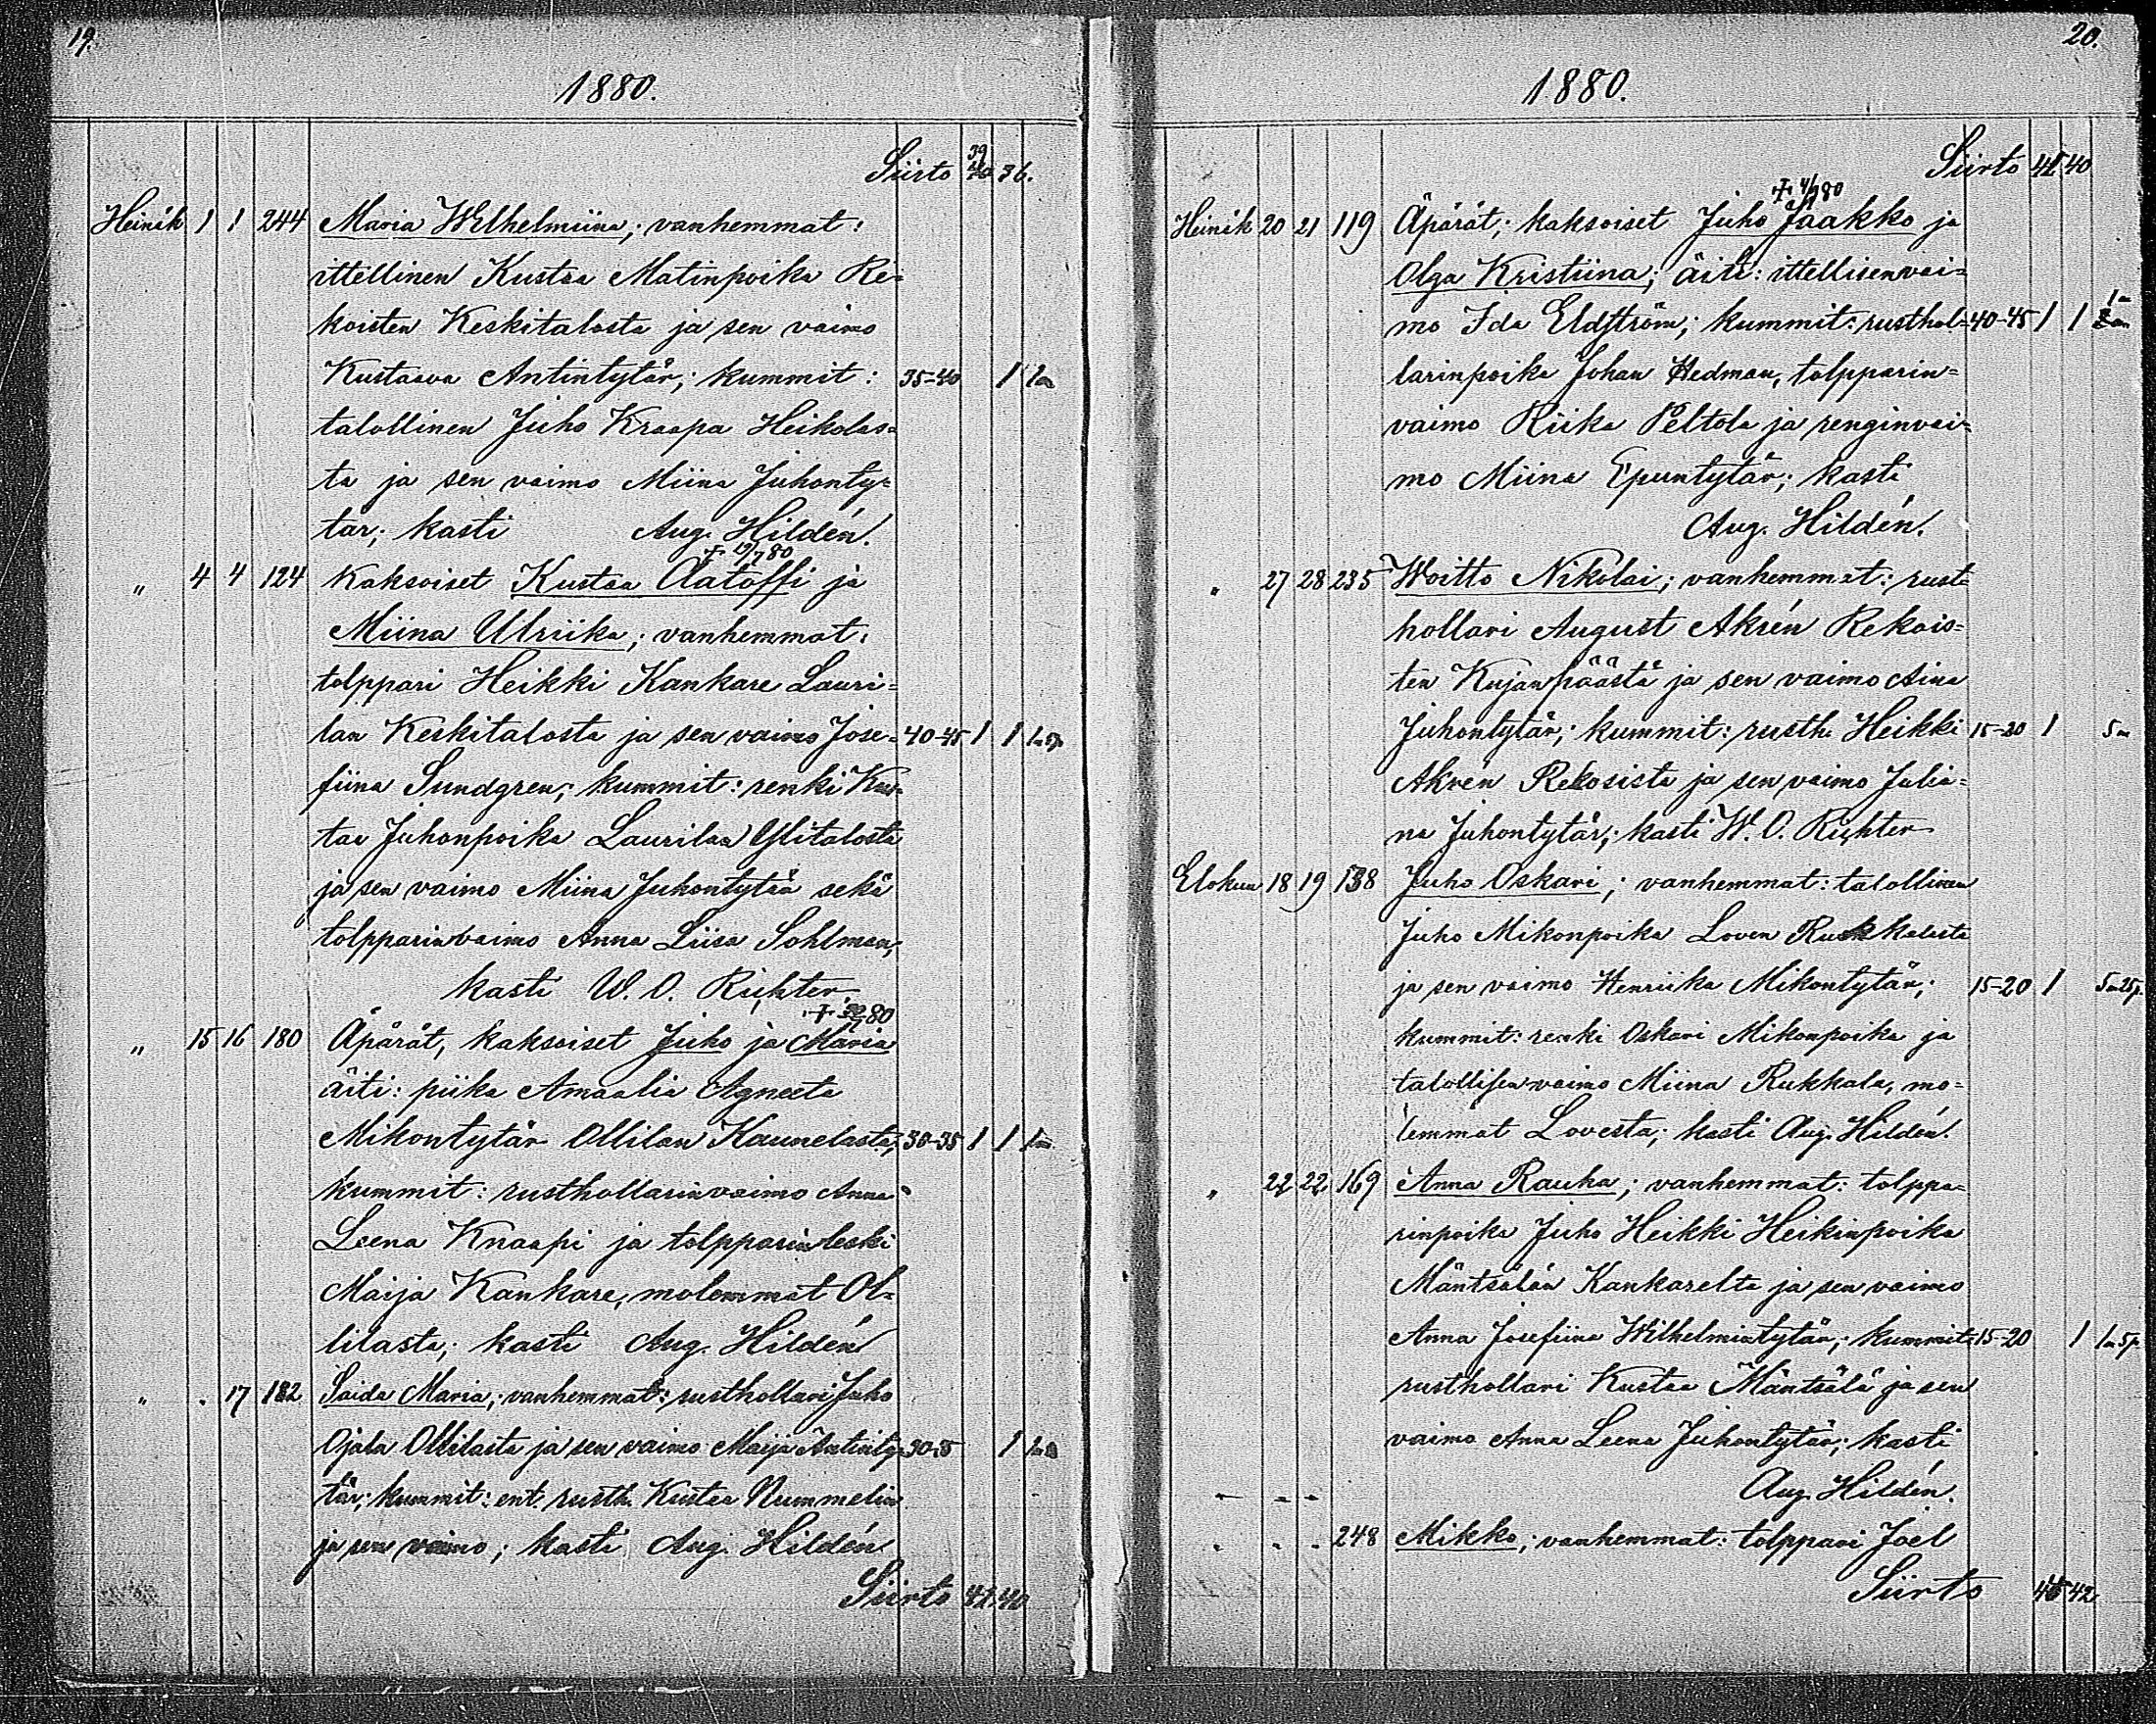 19.
1880.
Siirto 39 36.
Heinäk 1 1 244 Maria Wilhelmiina; vanhemmat:
ittellinen Kustaa Matinpoika Re=
koisten Keskitalosta ja sen vaimo
Kustaava Antintytär; kummit: 35-40 1 1m
talollinen Juho Kraapa Heikolas=
ta ja sen vaimo Miina Juhonty=
tär; kasti Aug. Hildén.
+ 19/7 80
" 4 4 124 Kaksoiset Kustaa Aatoffi ja
Miina Ulriika; vanhemmat:
tolppari Heikki Kankare Lauri=
lan Keskitalosta ja sen vaimo Jose= 40-45 1 1
fiina Sundgren; kummit: renki Kus=
taa Juhonpoika Laurilan Ylitalosta
ja sen vaimo Miina Juhontytär sekä
tolpparinvaimo Anna Liisa Sohlman;
kasti W. O. Richter
+ 80
" 15 16 180 Äpärät, kaksoiset Juho ja Maria
äiti: piika Amaalia Agneeta
Mikontytär Ollilan Kaunelasta; 30-35 1 1 1m
kummit: rusthollarinvaimo Anna
Leena Knaapi ja tolpparinleski
Maija Kankare, molemmat Ol=
lilasta; kasti Aug. Hildén
" . 17 182 Saida Maria; vanhemmat: rusthollari Juho
Ojala Ollilasta ja sen vaimo Maija Antinty= 30-5 1
tär; kummit: ent. rusth. Kustaa Nummelin
ja sen vaimo; kasti Aug. Hildén
Siirto 42 40
20.
1880.
Siirto 42 40
+ 4/9 80
Heinäk 20 21 119 Äpärät; kaksoiset Juho Jaakko ja
Olga Kristiina; äiti: ittellisenvai=
mo Ida Eldström; kummit: rusthol= 40-45 1 1 1m
larinpoika Johan Hedman, tolpparin=
vaimo Riika Peltola ja renginvai=
mo Miina Epuntytär; kasti
Aug. Hildén.
" 27 28 235 Woitto Nikolai; vanhemmat: rust=
hollari August Akrén Rekois=
ten Kujanpäästä ja sen vaimo Aina
Juhontytär; kummit: rusth. Heikki 15-20 1 5m
Akrén Rekosista ja sen vaimo Julia=
na Juhontytär; kasti W. O. Richter
Elokuu 18 19 138 Juho Oskari; vanhemmat: talollinen
Juho Mikonpoika Loven Rukkalasta
ja sen vaimo Henriika Mikontytär; 15-20 1 5m25p.
kummit: renki Oskari Mikonpoika ja
talollisenvaimo Miina Rukkala, mo=
lemmat Lovesta; kasti Aug. Hildén.
" 22 22 169 Anna Rauha; vanhemmat: tolppa=
rinpoika Juho Heikki Heikinpoika
Mäntsälän Kankarelta ja sen vaimo
Anna Josefiina Wilhelmintytär; kummit: 15-20 1 1m5p.
rusthollari Kustaa Mäntsälä ja sen
vaimo Anna Leena Juhontytär; kasti
Aug. Hildén.
" - - 248 Mikko; vanhemmat: tolppari Joel
Siirto 42